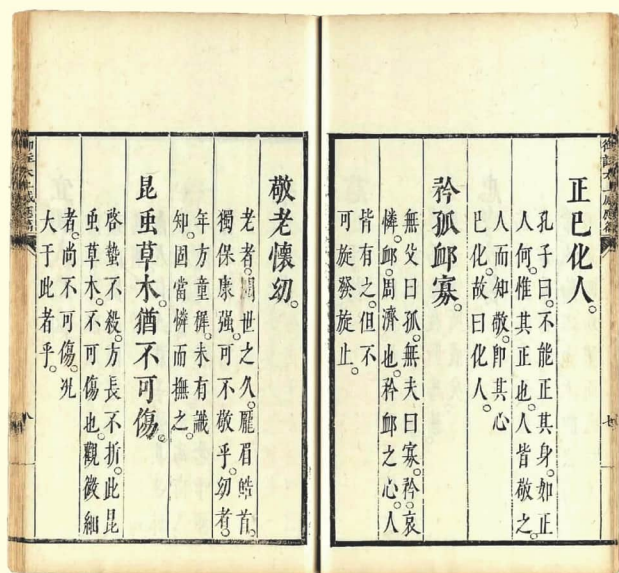 正己化人。
孔子曰。不能正其身。如正
人何。惟其正也。人皆敬之。
人而知敬。即其心
已化。故曰化人。
矜孤䘏寡。
無父曰孤。無夫曰寡。矜。哀
憐。䘏。周濟也。矜䘏之心。人
皆有之。但不
可旋發旋止。
敬老懷幼。
老者。閱世之久。龎眉皓首。
獨保康强。可不敬乎。幼者。
年方童穉。未有識
知。固當憐而撫之。
昆虫草木。猶不可傷。
啓蟄不殺。方長不折。此昆
虫草木。不可傷也。觀微細
者。尚不可傷。况
大于此者乎。
七
八